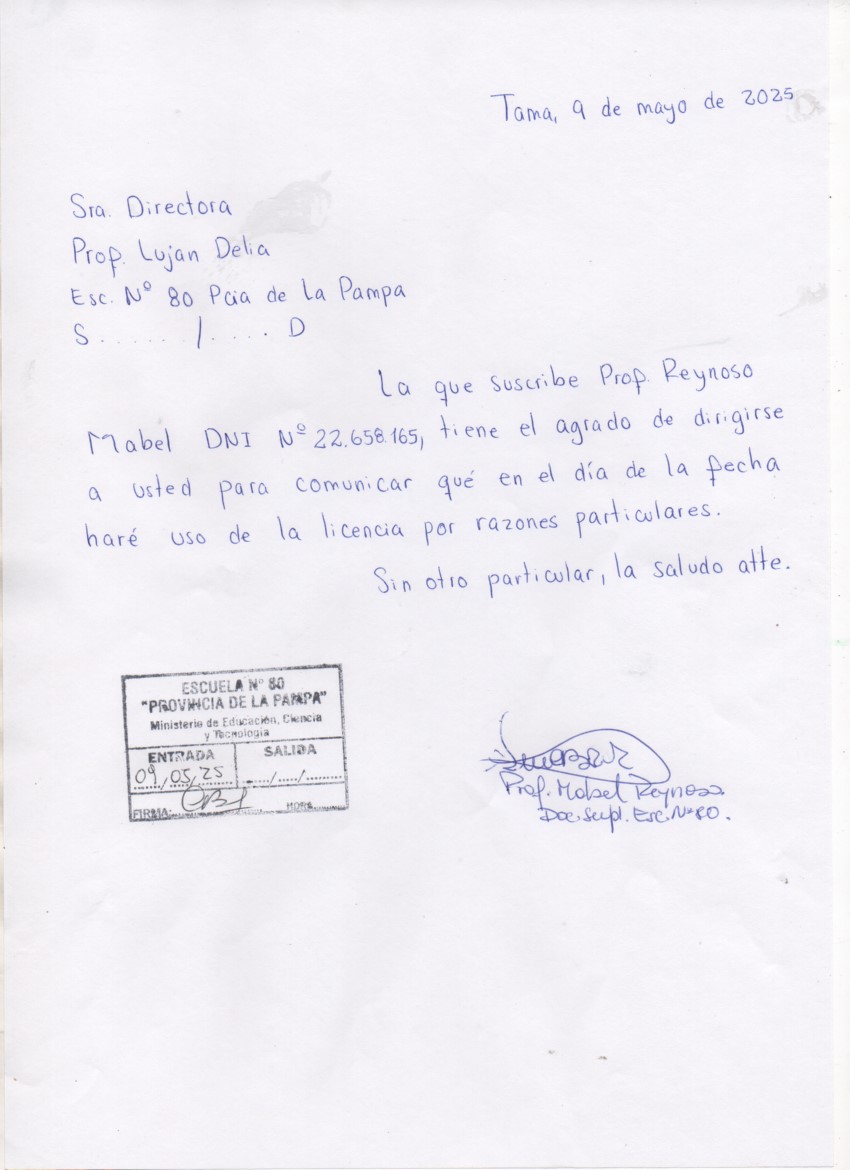 Tama, 9 de mayo de 2025
Sra. Directora
Prof. Lujan Delia
Esc. Nº 80 Pcia de La Pampa
S......./.....D
La que suscribe Prof. Reynoso
Mabel DNI Nº 22.658.165, tiene el agrado de dirigirse
a usted para comunicar qué en el día de la fecha
haré uso de la licencia por razones particulares.
Sin otro particular, la saludo atte.
ESCUELA Nº 80
"PROVINCIA DE LA PAMPA"
Ministerio de Educación, Ciencia
y Tecnología
ENTRADA SALIDA
09/05/25 ..../..../........
FIRMA: HORA
Prof. Mabel Reynoso
Doc. Supl. Esc. Nº 80.